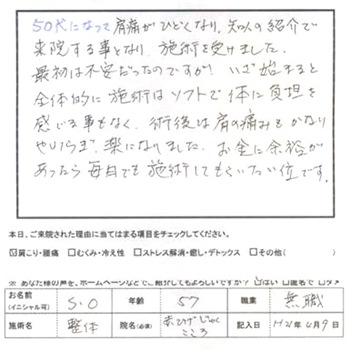 50代になって肩痛がひどくなり、知人の紹介で
来院する事となり施術を受けました。
最初は不安だったのですが、いざ始まると
全体的に施術はソフトで体に負担を
感じる事もなく、術後は肩の痛みもかなり
やわらぎ、楽になりました。お金に余裕が
あったら毎日でも施術してもらいたい位です。
本日、ご来院された理由に当てはまる項目をチェックしてください。
☑肩こり・腰痛 □むくみ・冷え性 □ストレス解消・癒し・デトックス □その他( )
※ あなた様の声を、ホームページなどでご紹介してもよろしいですか? □はい □匿名で □ダメ
お名前 (イニシャル可) S.O 年齢 57 職業 無職
施術名 整体 院名(必須) 赤ひげじゅく こころ 記入日 H21年4月9日